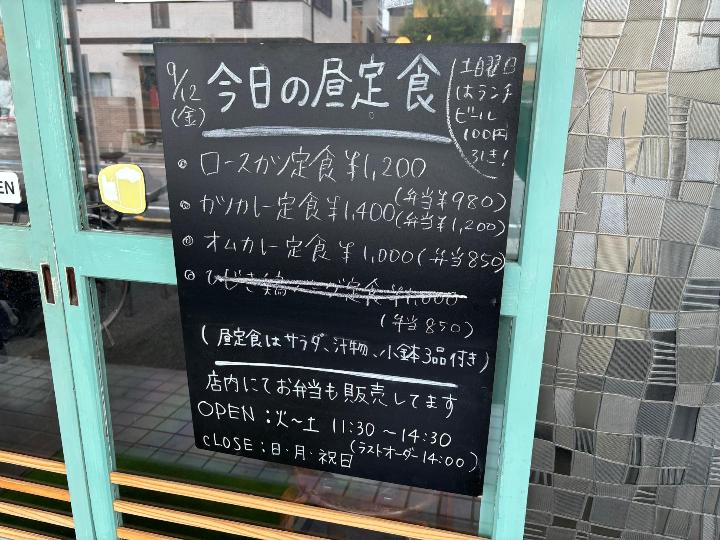 9/12
(金)
今日の昼定食
土曜日
はランチ
ビール
100円
引き!
ロースカツ定食¥1,200
(弁当¥980)
カツカレー定食¥1,400
(弁当¥1,200)
オムカレー定食¥1,000(弁当850)
ひじき鶏 定食¥1,000
(弁当850)
(昼定食はサラダ、汁物、小鉢3品付き)
店内にてお弁当も販売してます
OPEN:火~土 11:30~14:30
(ラストオーダー14:00)
CLOSE:日・月・祝日
EN